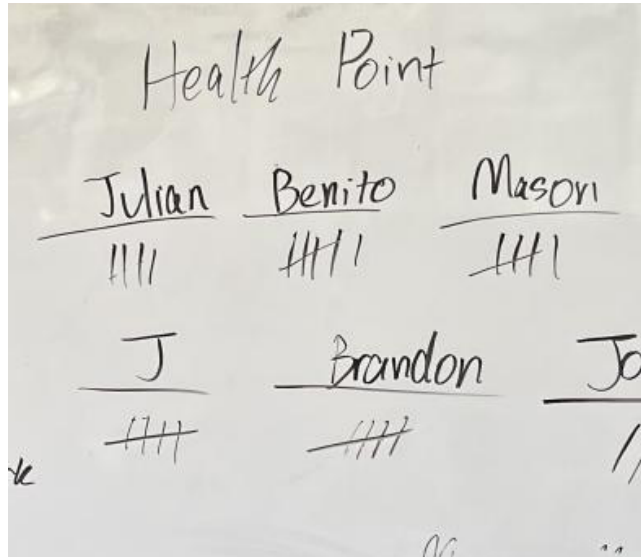 Health Point
Julian Benito Mason
J Brandon Jo